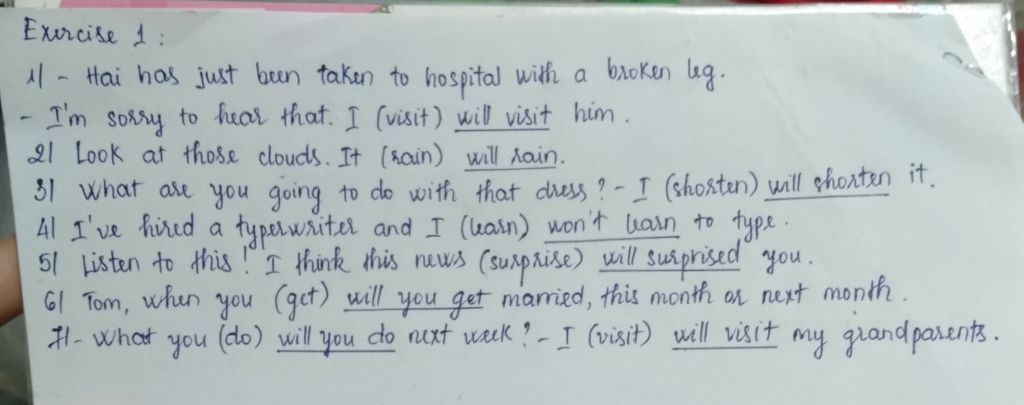 Exercise 1 :
1/ - Hai has just been taken to hospital with a broken leg.
- I'm sorry to hear that. I (visit) will visit him.
2/ Look at those clouds. It (rain) will rain.
3/ What are you going to do with that dress? - I (shorten) will shorten it.
4/ I've hired a typerwriter and I (learn) won't learn to type.
5/ Listen to this! I think this news (surprise) will surprised you.
6/ Tom, when you (get) will you get married, this month or next month.
7/- What you (do) will you do next week? - I (visit) will visit my grandparents.